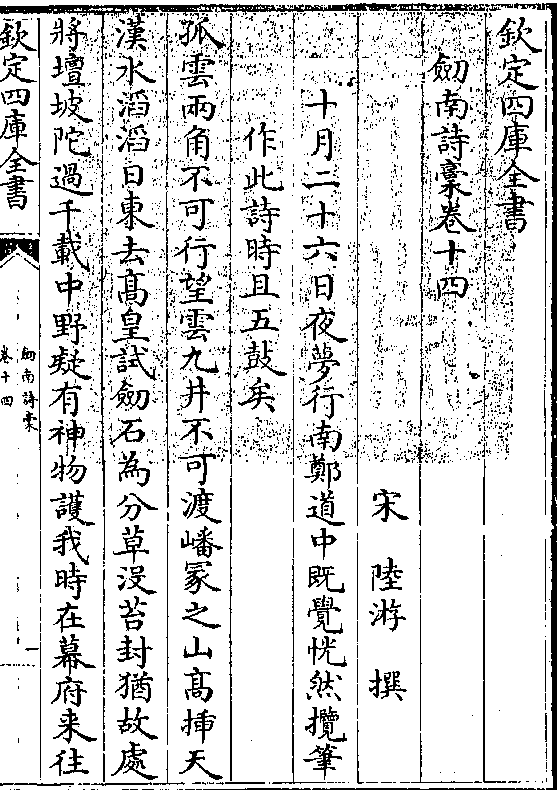 欽定四庫全書
劒南詩槀卷十四
宋 陸游 撰
十月二十六日夜夢行南鄭道中既覺恍然攬筆
作此詩時且五鼓矣
孤雲兩角不可行望雲九井不可渡嶓冢之山髙揷天
漢水滔滔日東去髙皇試劒石為分草沒苔封猶故處
將壇坡陀過千載中野疑有神物護我時在幕府来往
欽定四庫全書
劒南詩槀
卷十四
一